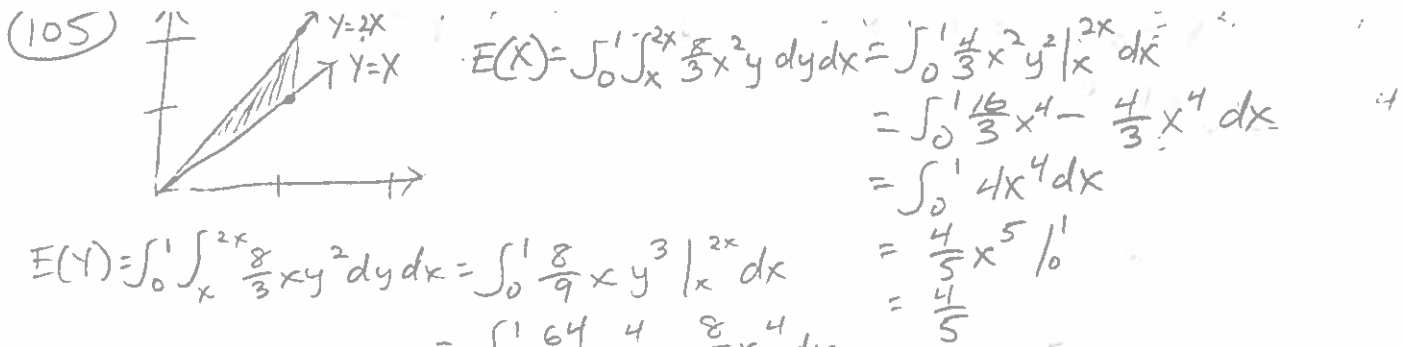 105
Y=2X
Y=X
E(X)=∫₀¹∫ₓ²ˣ 8/3 x²y dydx = ∫₀¹ 4/3 x²y² |ₓ²ˣ dx
= ∫₀¹ 16/3 x⁴ - 4/3 x⁴ dx
= ∫₀¹ 4x⁴dx
= 4/5 x⁵ |₀¹
= 4/5
E(Y)=∫₀¹∫ₓ²ˣ 8/3 xy² dy dx = ∫₀¹ 8/9 x y³ |ₓ²ˣ dx
= ∫₀¹ 64 4 8 x⁴ dx